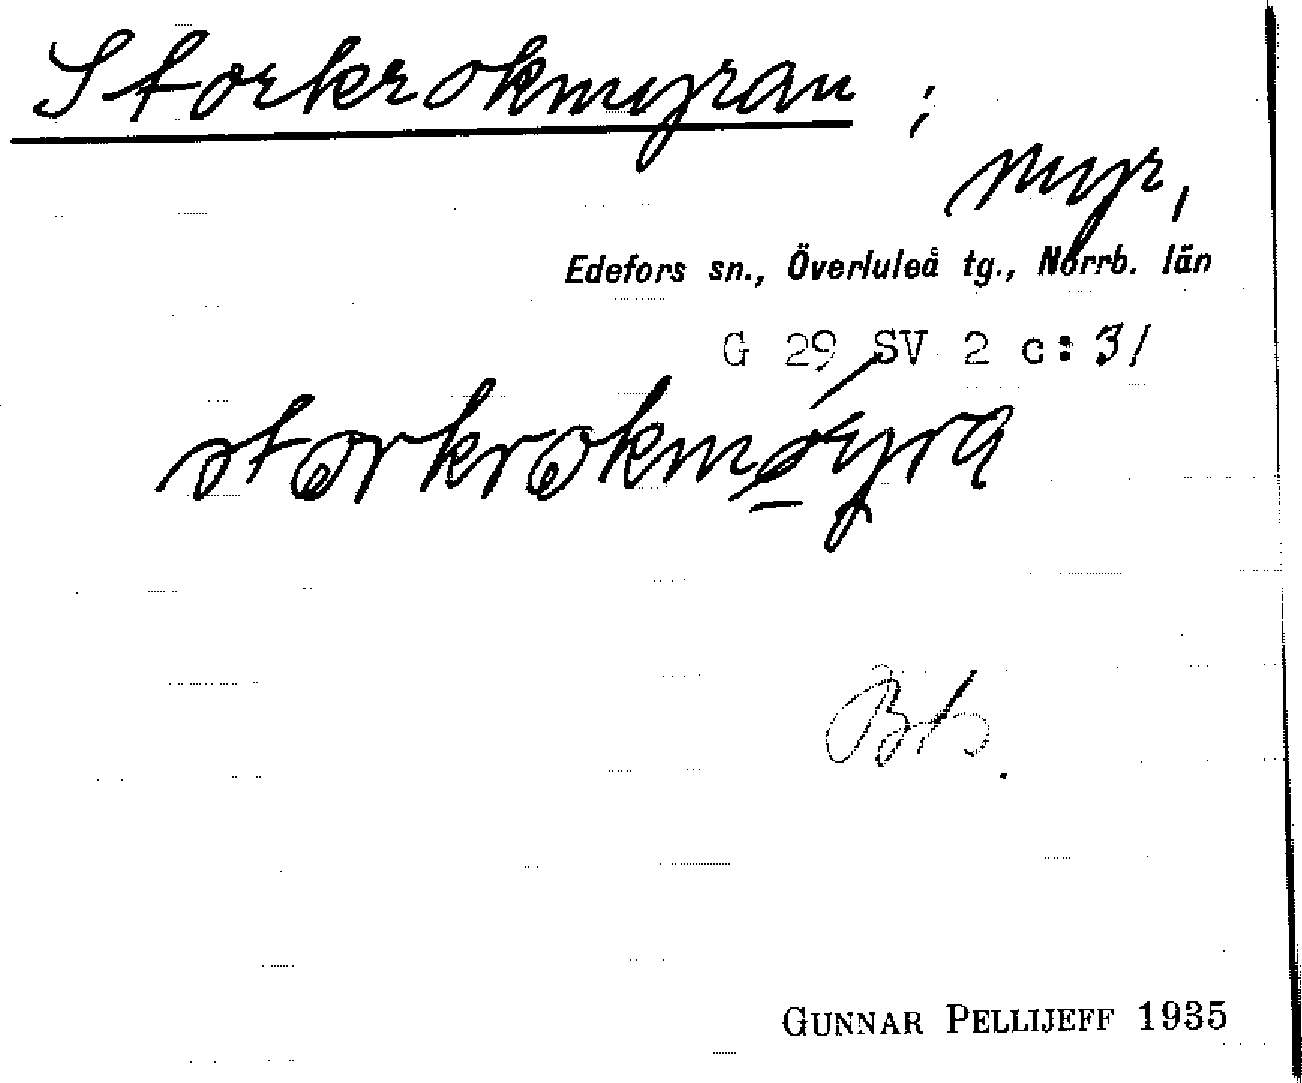 Storkrokmyran ;
myr,
Edefors sn., Överluleå tg., Norrb. län
G 29 SV 2 c:31
GUNNAR PELLIJEFF 1935